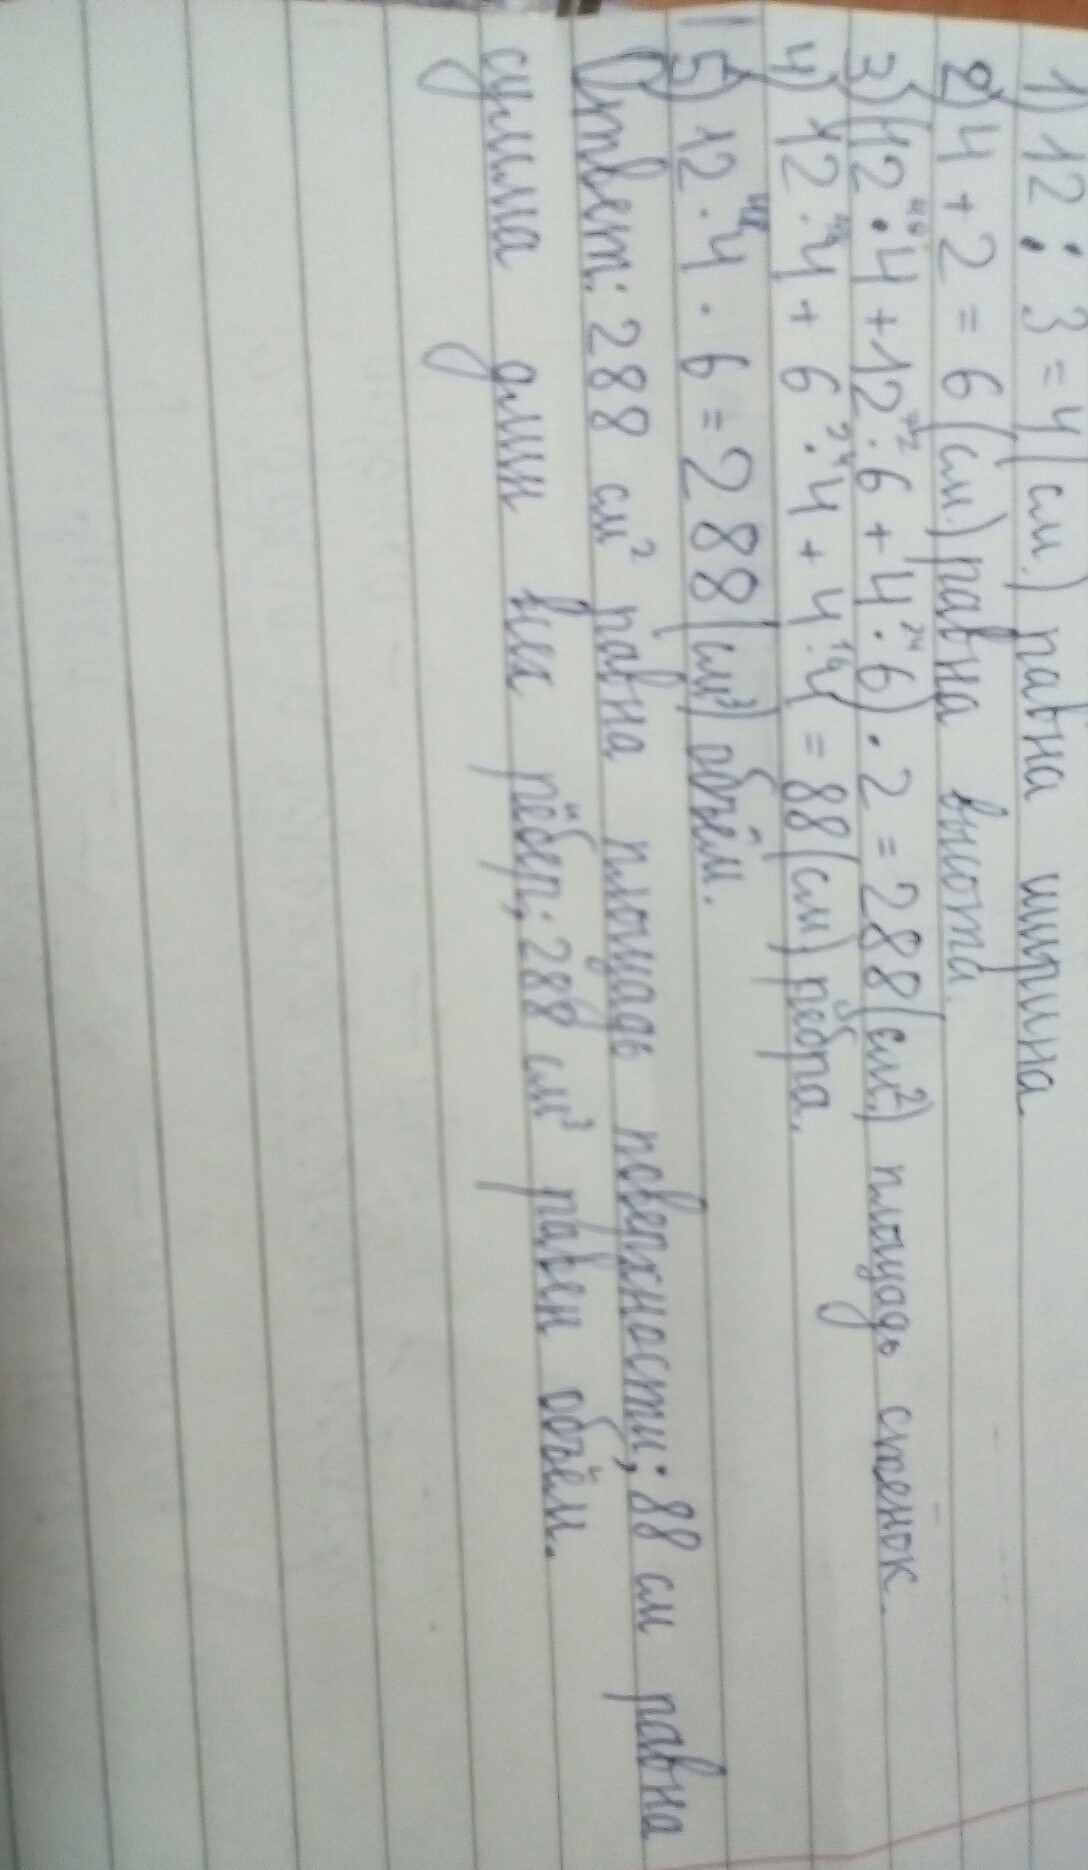 1) 12 : 3 = 4 (см.) равна ширина.
2) 4 + 2 = 6 (см.) равна высота.
3) (12 · 4 + 12 · 6 + 4 · 6) · 2 = 288 (см².) площадь стенок.
4) 12 · 4 + 6 · 4 + 4 · 4 = 88 (см) рёбра.
5) 12 · 4 · 6 = 288 (см³) объём.
Ответ: 288 см² равна площадь поверхности; 88 см равна
сумма длин всех рёбер; 288 см³ равен объём.